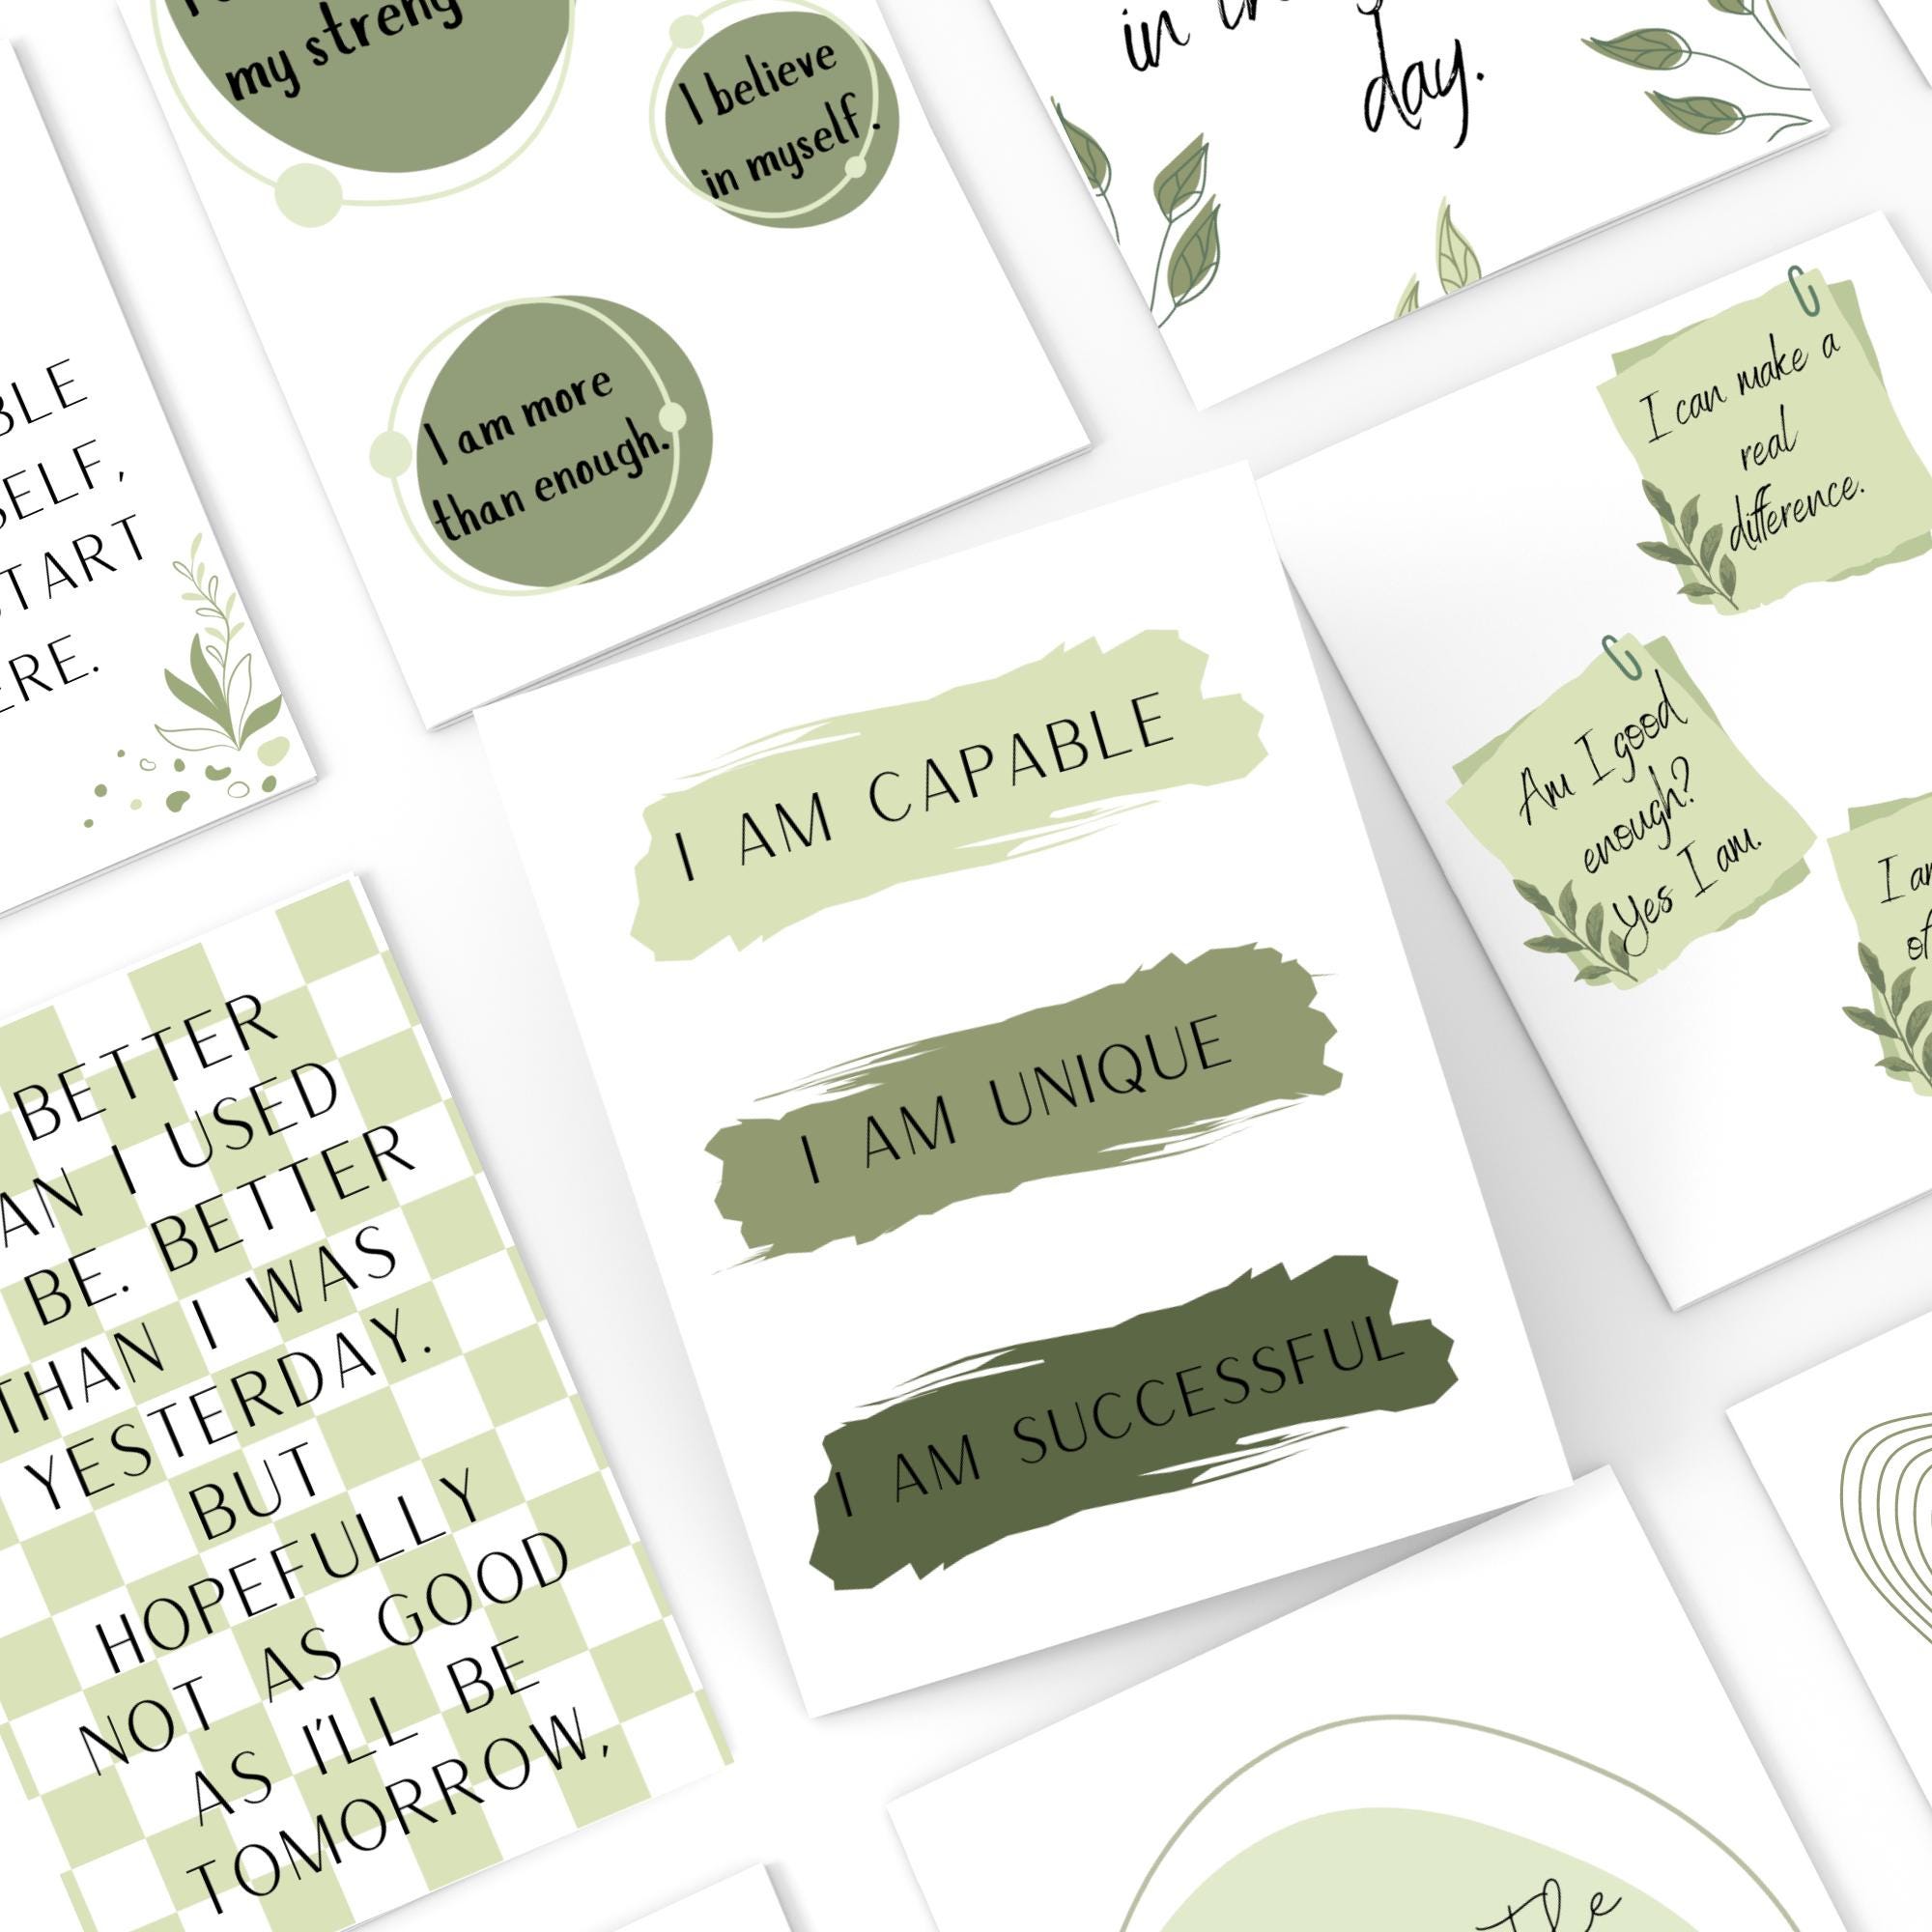 my
I believe
in myself.
I am more
than enough.
in
day.
I can make a
real
difference.
Am I good
enough?
Yes I am.
I AM CAPABLE
I AM UNIQUE
I AM SUCCESSFUL
START
BETTER
I USED
BE. BETTER
THAN I WAS
YESTERDAY.
BUT
HOPEFULLY
NOT AS GOOD
AS I'LL BE
TOMORROW,
the